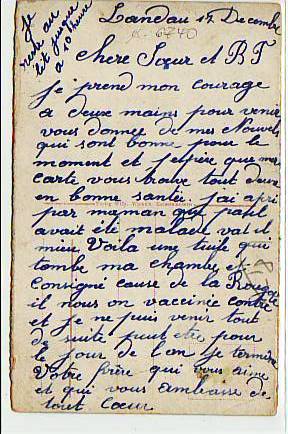 Je
reste au
lit jusque
a 10 heure
Landau 17 Decembre
K. 6740
chere Sœur et B F
je prend mon courage
a deux mains pour venir
vous donnee de mes Nouvels
qui sont bonne pour le
moment et j'espere que ma
carte vous trouve tout deux
en bonne santée j'ai apri
par maman que paul
avait été malade vat il
mieu Voila une tuile qui
tombe ma chambre et
consigné cause de la Rougeole
il nous on vaccinée contre
et je ne puis venir tout
de suite peut etre pour
le jour de l'an je termine
Votre frère qui vous aime
et qui vous embrasse de
tout Cœur